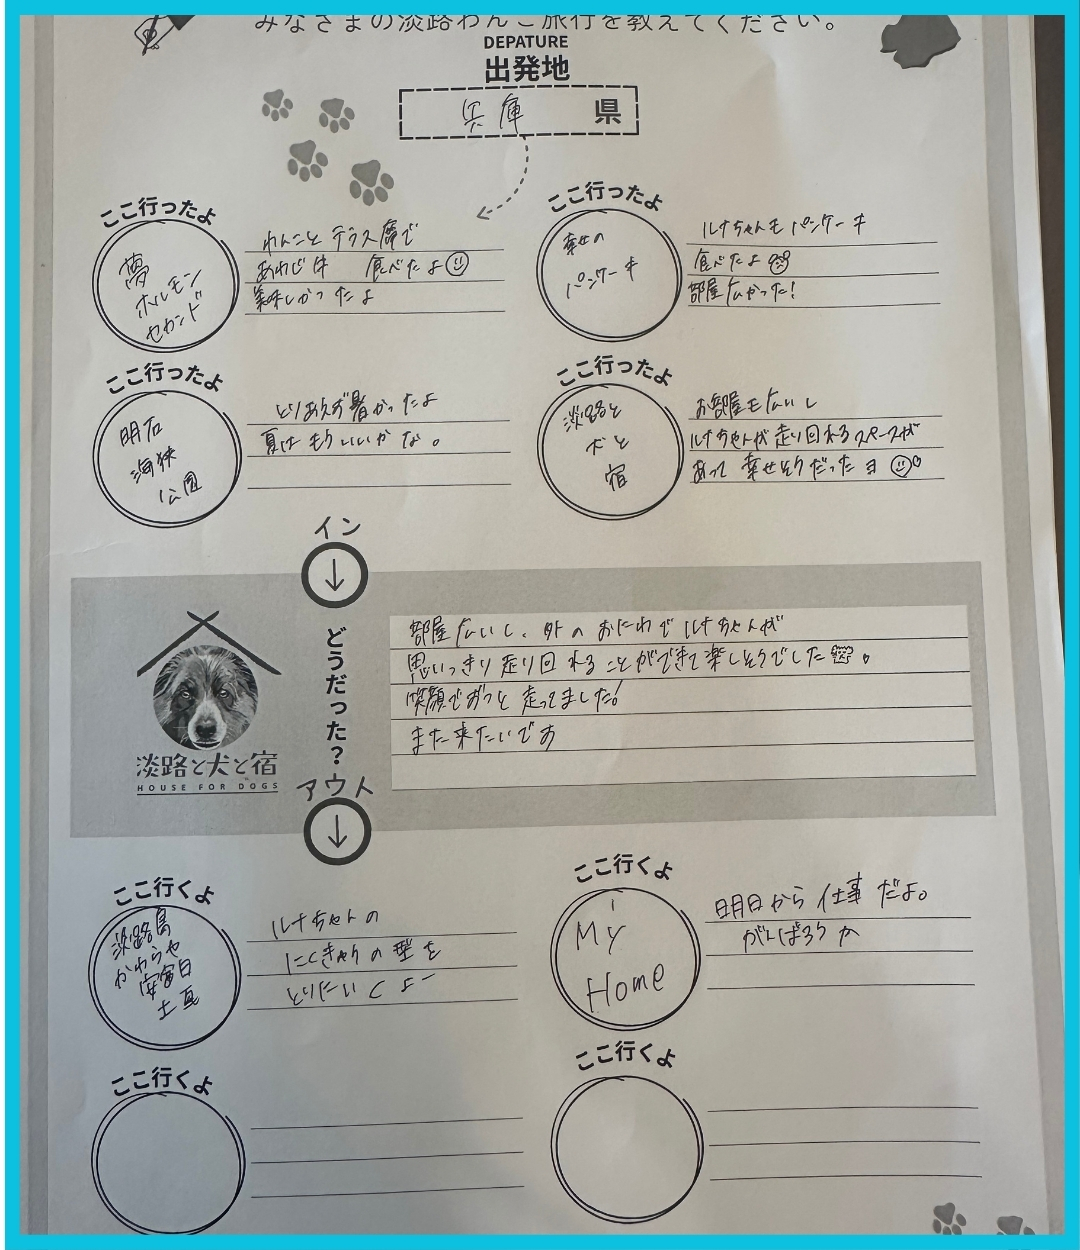 みなさまの淡路わんこ旅行を教えてください。
DEPATURE
出発地
兵庫 県
ここ行ったよ
夢
ホルモン
セカンド
わんこと テラス席で
あわじ牛 食べたよ
美味しかったよ
ここ行ったよ
幸せの
パンケーキ
ルナちゃんも パンケーキ
食べたよ
部屋広かった!
ここ行ったよ
明石
海狭
公園
とりあえず暑かったよ
夏は もういいかな。
ここ行ったよ
淡路と
犬と
宿
お部屋も広いし
ルナちゃんが走り回れるスペースが
あって 幸せそうだったヨ
イン
どうだった?
部屋広いし、外の おにわで ルナちゃんが
思いっきり走り回れることができて楽しそうでした 。
笑顔でずっと 走ってました!
また来たいです
淡路と犬と宿
HOUSE FOR DOGS
アウト
ここ行くよ
淡路島
かわらや
安冨白
土瓦
ルナちゃんの
にくきゅうの型を
とりにいくよー
ここ行くよ
My
Home
明日から仕事だよ。
がんばろうか
ここ行くよ
ここ行くよ